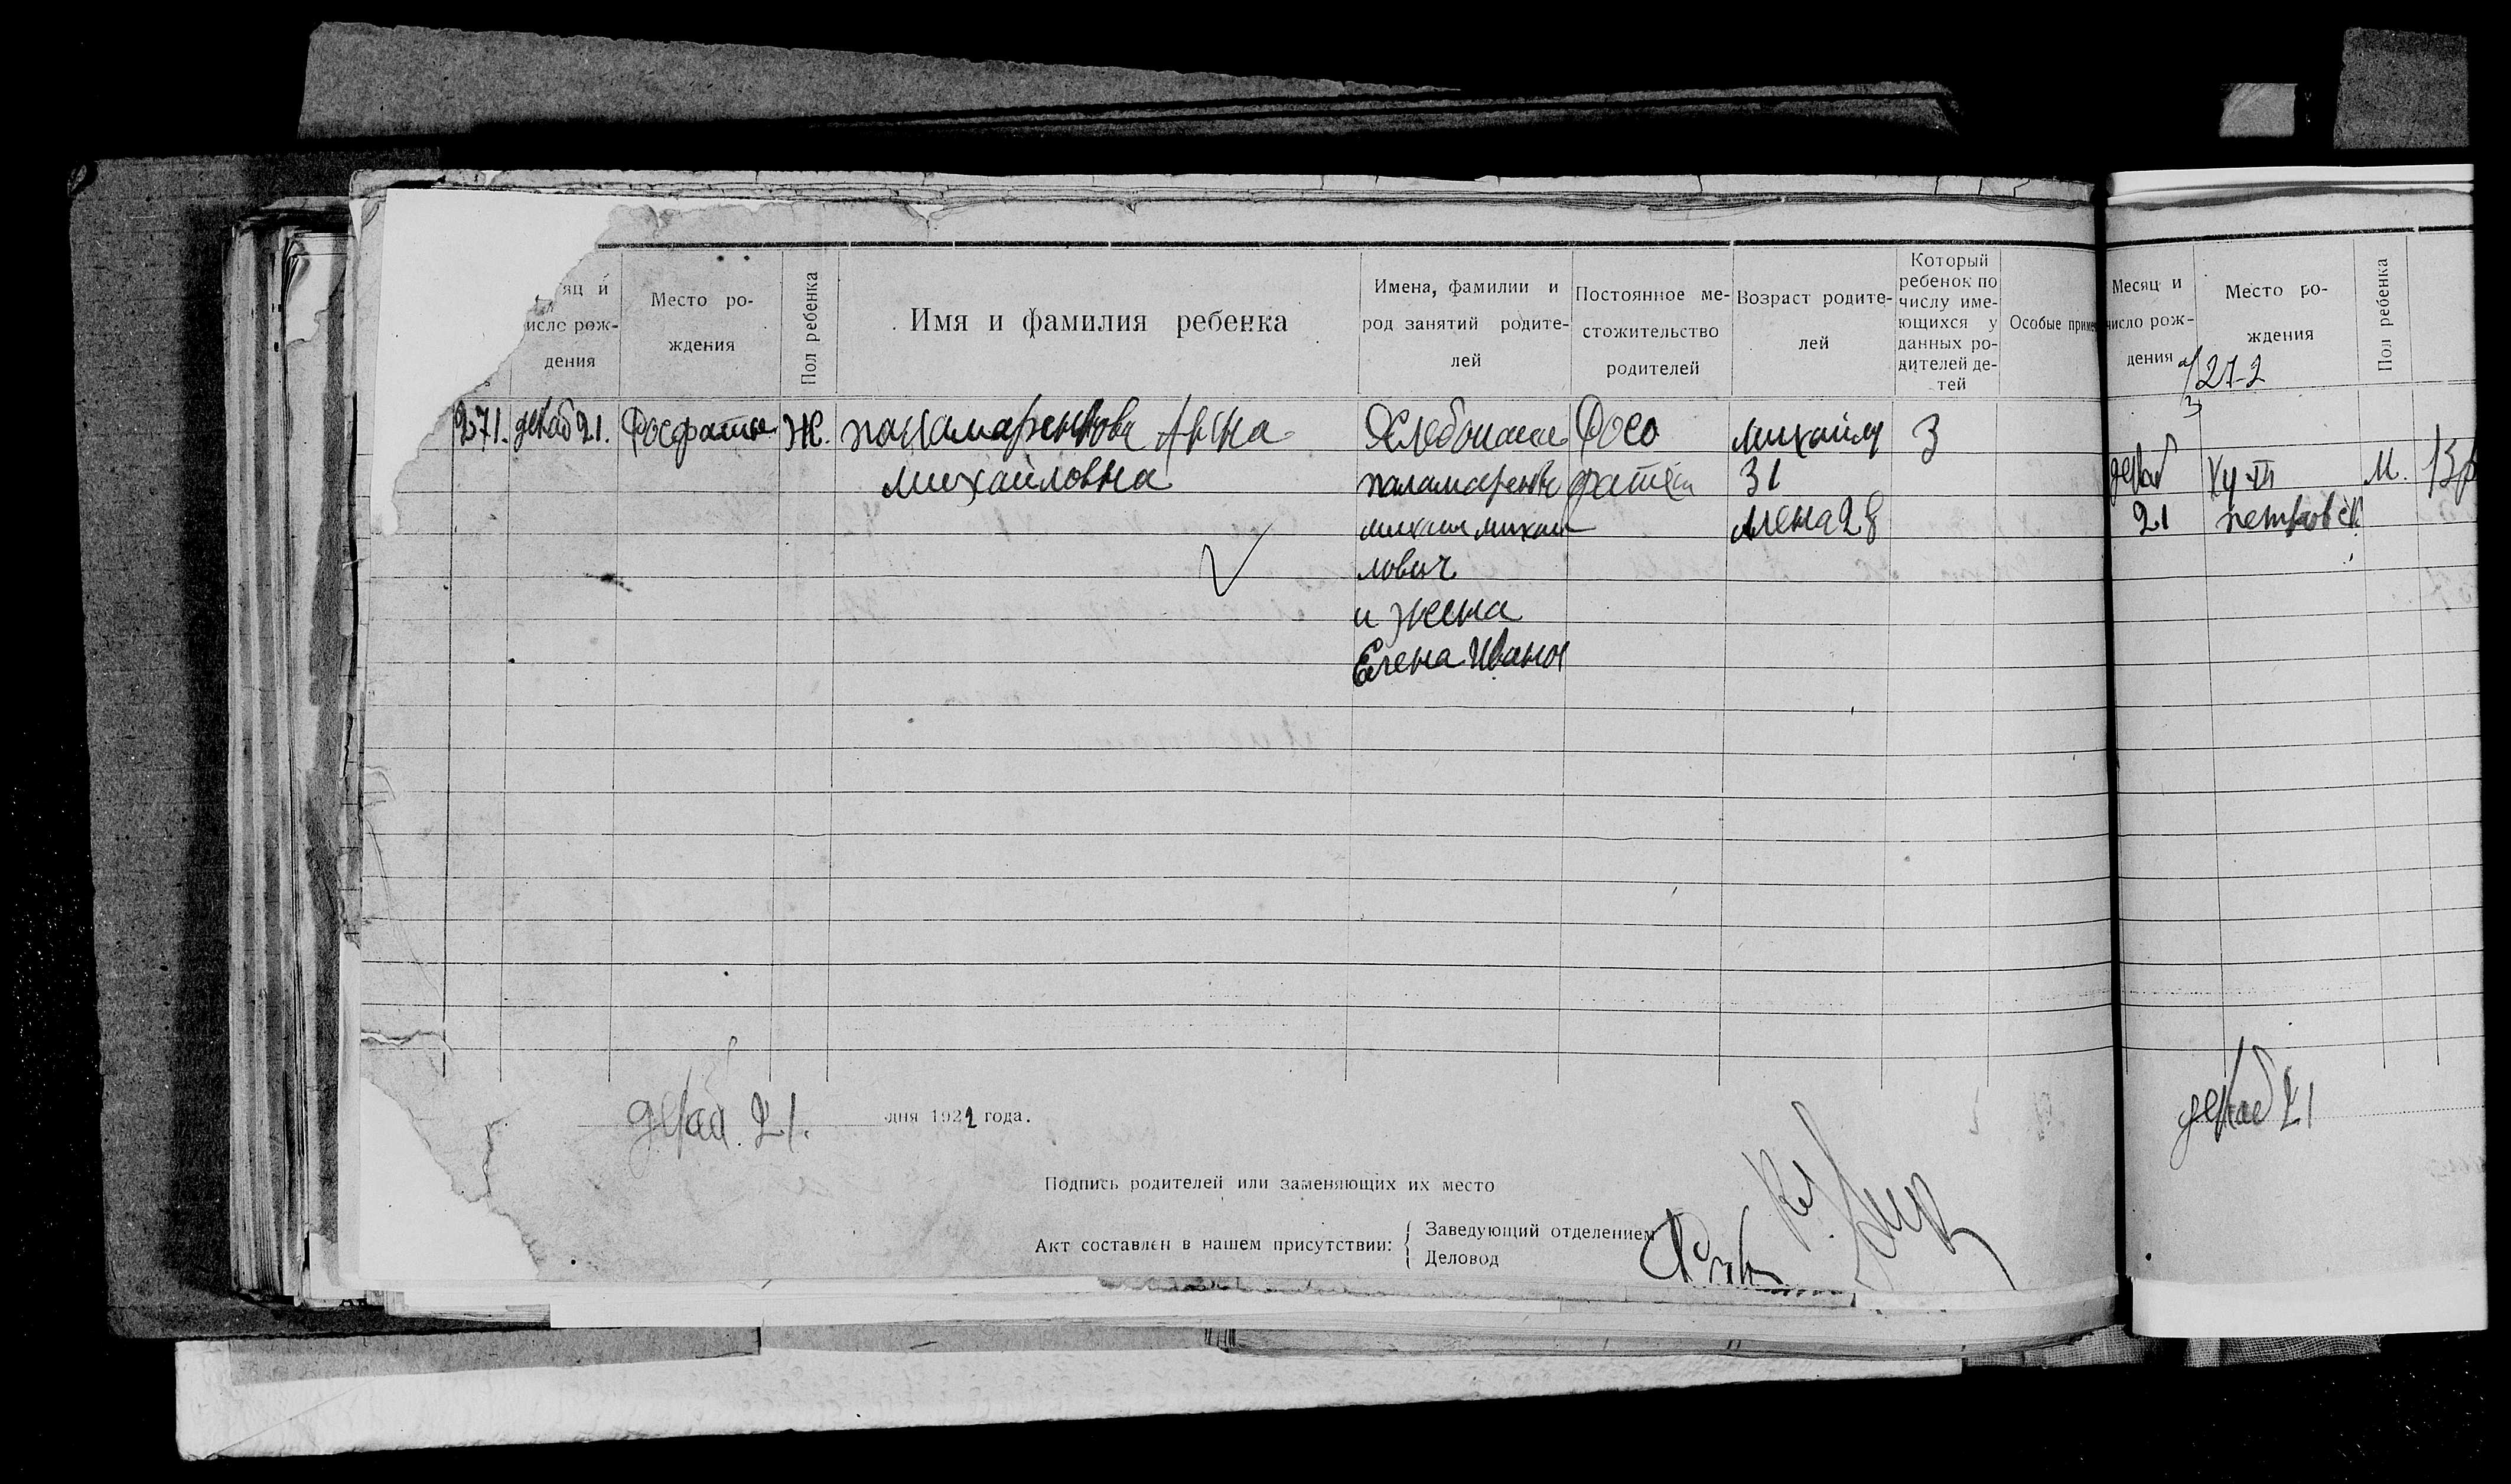 яц и
исло рож-
дения
Место ро-
ждения
Пол ребенка
Имя и фамилия ребенка
Имена, фамилии и
род занятий родите-
лей
Постоянное ме-
стожительство
родителей
Возраст родите-
лей
Который
ребенок по
числу име-
ющихся у
данных ро-
дителей де-
тей
Особые приме
271. декаб 21. Ж. Анна
михайловна
Хлебопаш
михаил михаи
лович
и жена
Елена Иванов
михаилу
31
Алена 28
3
декаб. 21. дня 1922 года.
Подпись родителей или заменяющих их место
Акт составлен в нашем присутствии:
Заведующий отделением
Деловод
Месяц и
число рож-
дения
Место ро-
ждения
Пол ребенка
272
3
декаб
21
М.
декаб 21